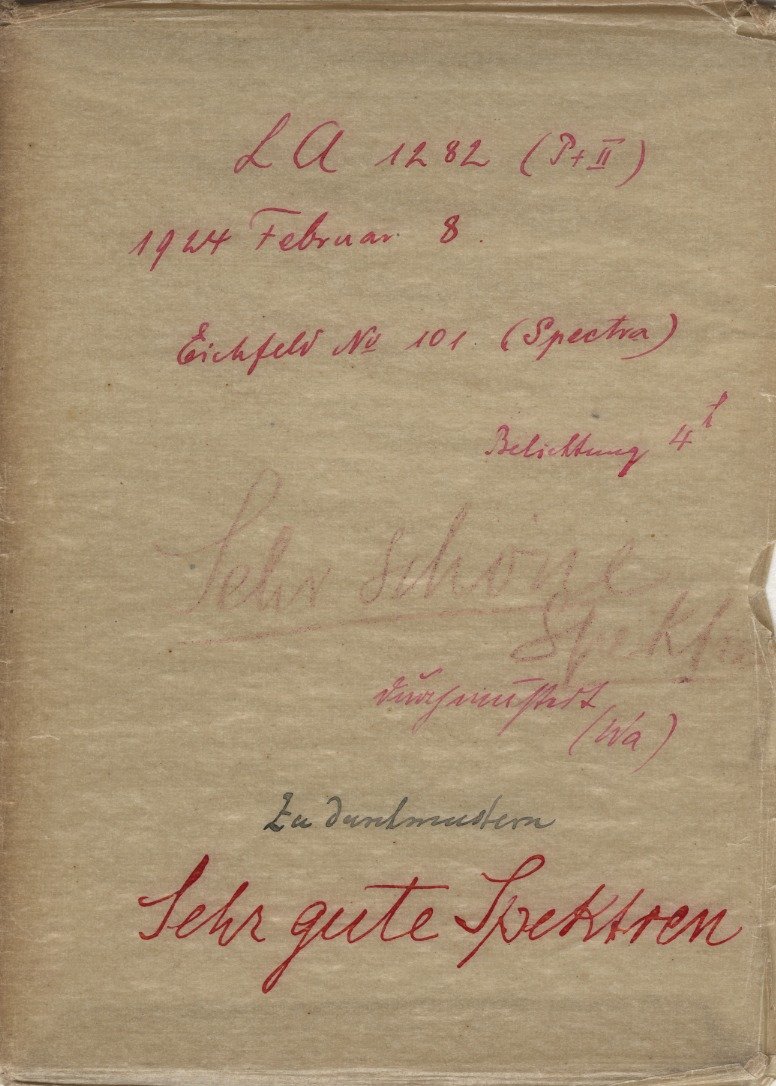 LA 1282 (P+II)
1924 Februar 8.
Eichfeld No 101. (Spectra)
Belichtung 4h
Sehr schöne
Spektren
durchmustert
(Wa)
Zu durchmustern
Sehr gute Spektren